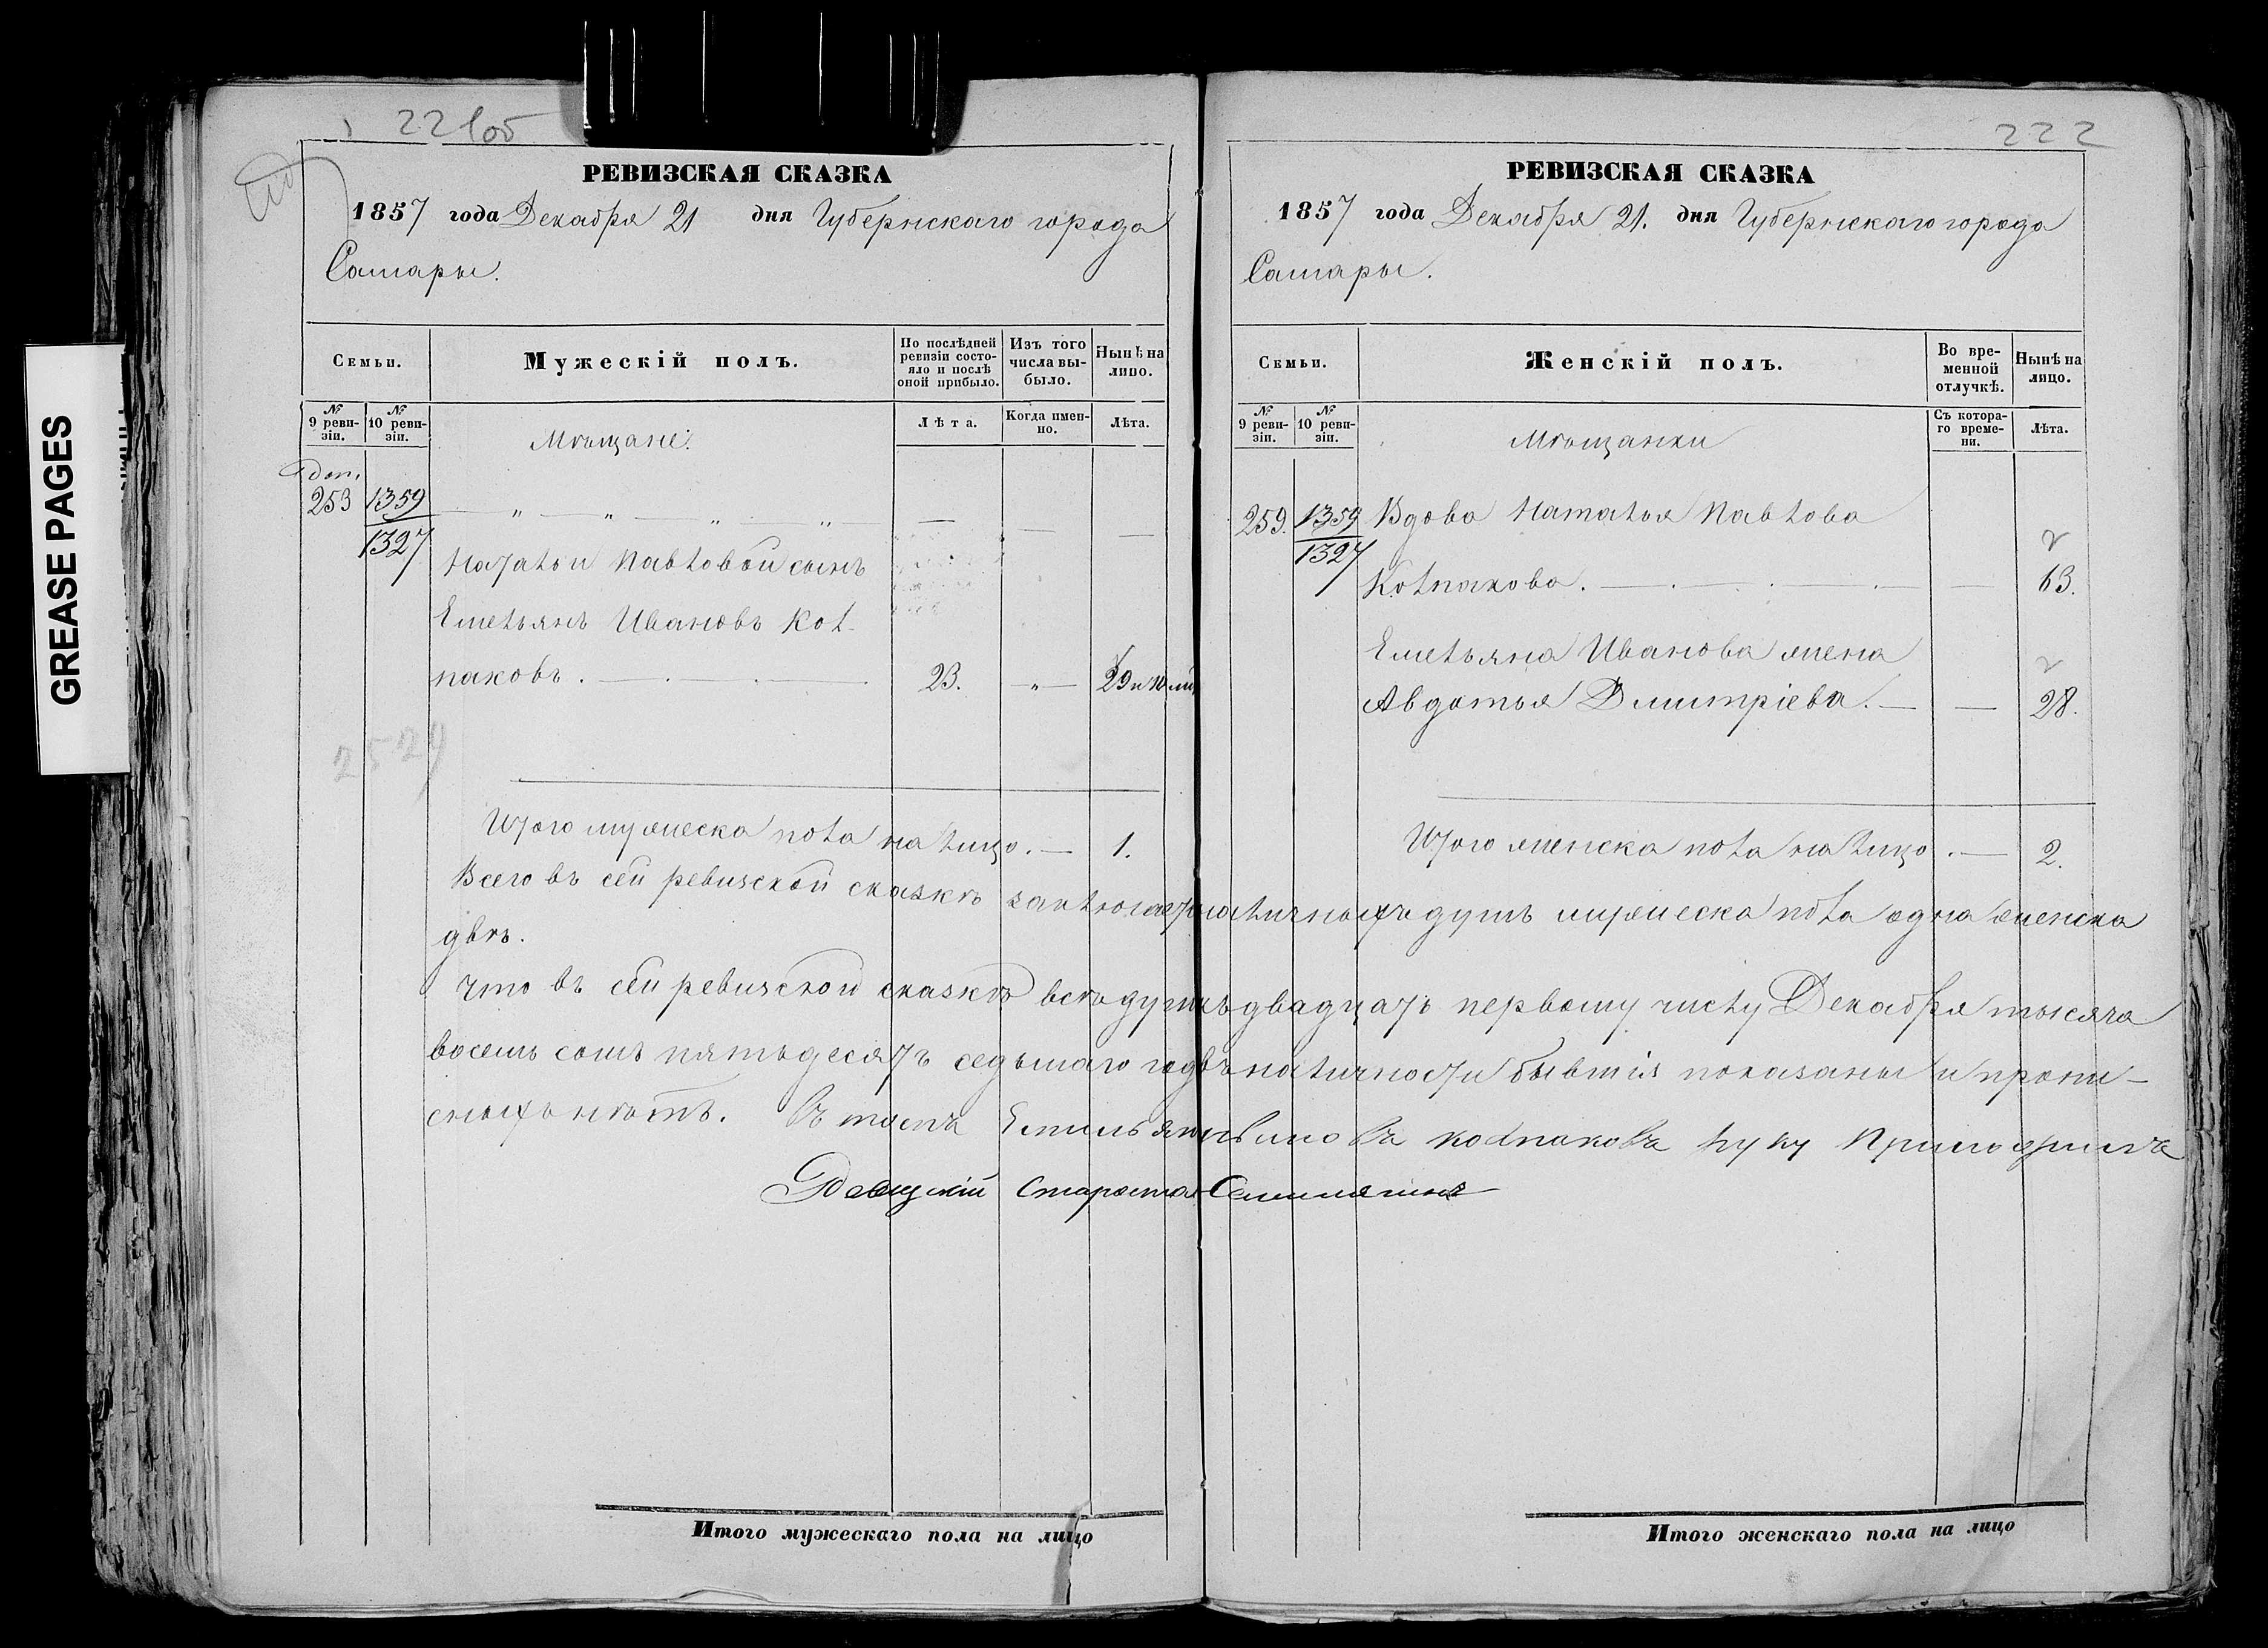 GREASE PAGES
221 об
РЕВИЗСКАЯ СКАЗКА
1857 года Декабря 21 дня Губернскаго города
Самары.
Семьи.
Мужескій полъ.
По послѣдней ревизіи состояло и послѣ оной прибыло.
Изъ того числа выбыло.
Нынѣ на лицо.
№ 9 ревизіи.
№ 10 ревизіи.
Мѣщане.
Лѣта.
Когда именно.
Лѣта.
доп.
253
1359
1327
— „ — „ — „ — „ — — —
Натальи Павловой сынъ
Емельянъ Ивановъ Кол-
паковъ. — . — . — 23. — „ — 29 и 10 м
2529
Итого мужеска пола на лицо. — 1.
222
РЕВИЗСКАЯ СКАЗКА
1857 года Декабря 21. дня Губернскаго города
Самары.
Семьи.
Женскій полъ.
Во временной отлучкѣ.
Нынѣ на лицо.
№ 9 ревизіи.
№ 10 ревизіи.
Мѣщанки
Съ котораго времени.
Лѣта.
259.
1359
1327
Вдова Наталья Павлова
Колпакова. — . — . — — 63.
Емельяна Иванова жена
Авдотья Дмитріева. — — 28.
Итого женска пола на лицо. — 2.
Всего въ сей ревизской сказкѣ заключается наличныхъ душъ мужеска пола одна женска
двѣ.
Что въ сей ревизской сказкѣ всѣ душъ двадцать первому числу Декабря тысяча
восемь сотъ пятьдесятъ седьмаго года въ наличности бывшія показаны и пропи-
сныхъ нѣтъ. Въ томъ Колпаковъ руку приложилъ
Староста
Итого мужескаго пола на лицо
Итого женскаго пола на лицо